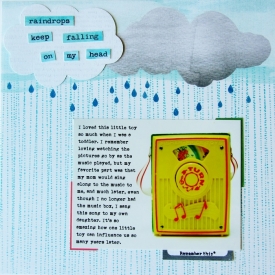 raindrops
keep falling
on my head
I loved this little toy
so much when I was a
toddler. I remember
loving watching the
pictures go by as the
music played, but my
favorite part was that
my mom would sing
along to the music to
me, and much later, even
though I no longer had
the music box, I sang
this song to my own
daughter. it's so
amazing how one little
toy can influence us so
many years later.
Remember this